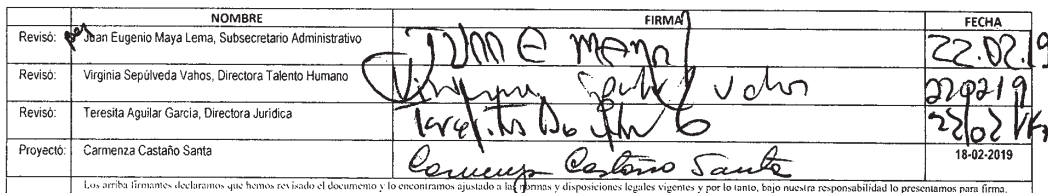 NOMBRE FIRMA FECHA
Revisó: Juan Eugenio Maya Lema, Subsecretario Administrativo 22.02.19
Revisó: Virginia Sepúlveda Vahos, Directora Talento Humano 220219
Revisó: Teresita Aguilar García, Directora Jurídica
Proyectó: Carmenza Castaño Santa Carmenza Castaño Santa 18-02-2019
Los arriba firmantes declaramos que hemos revisado el documento y lo encontramos ajustado a las normas y disposiciones legales vigentes y por lo tanto, bajo nuestra responsabilidad lo presentamos para firma.